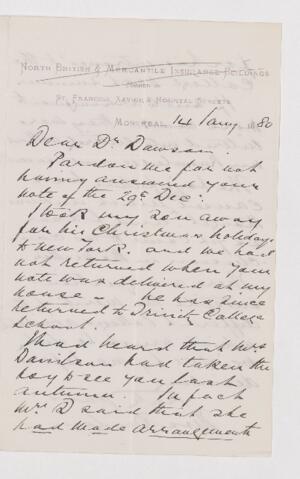 North British & Mercantile Insurance Buildings
Corner of
St. Francois Xavier & Hospital Streets
Montreal 14 Jany 1880
Dear Dr Dawson
Pardon me for not
having answered your
note of the 29th Dec:
I took my son away
for his Christmas holidays
to New York. and we had
not returned when your
note was delivered at my
house - he has since
returned to Trinity College
School.
I had heard that Mrs
Davidson had taken the
boy to see you last
autumn. In fact
Mrs D said that she
had made arrangements